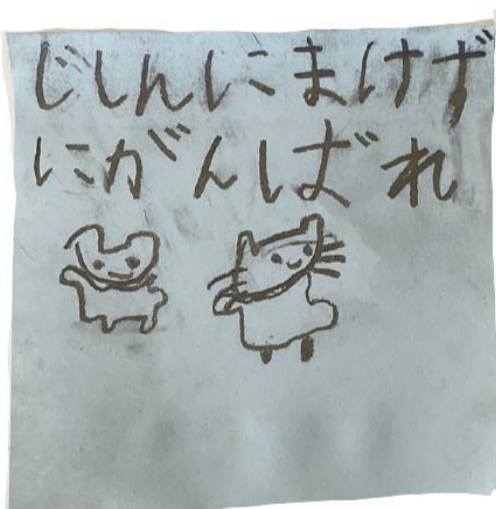 じしんにまけず
にがんばれ